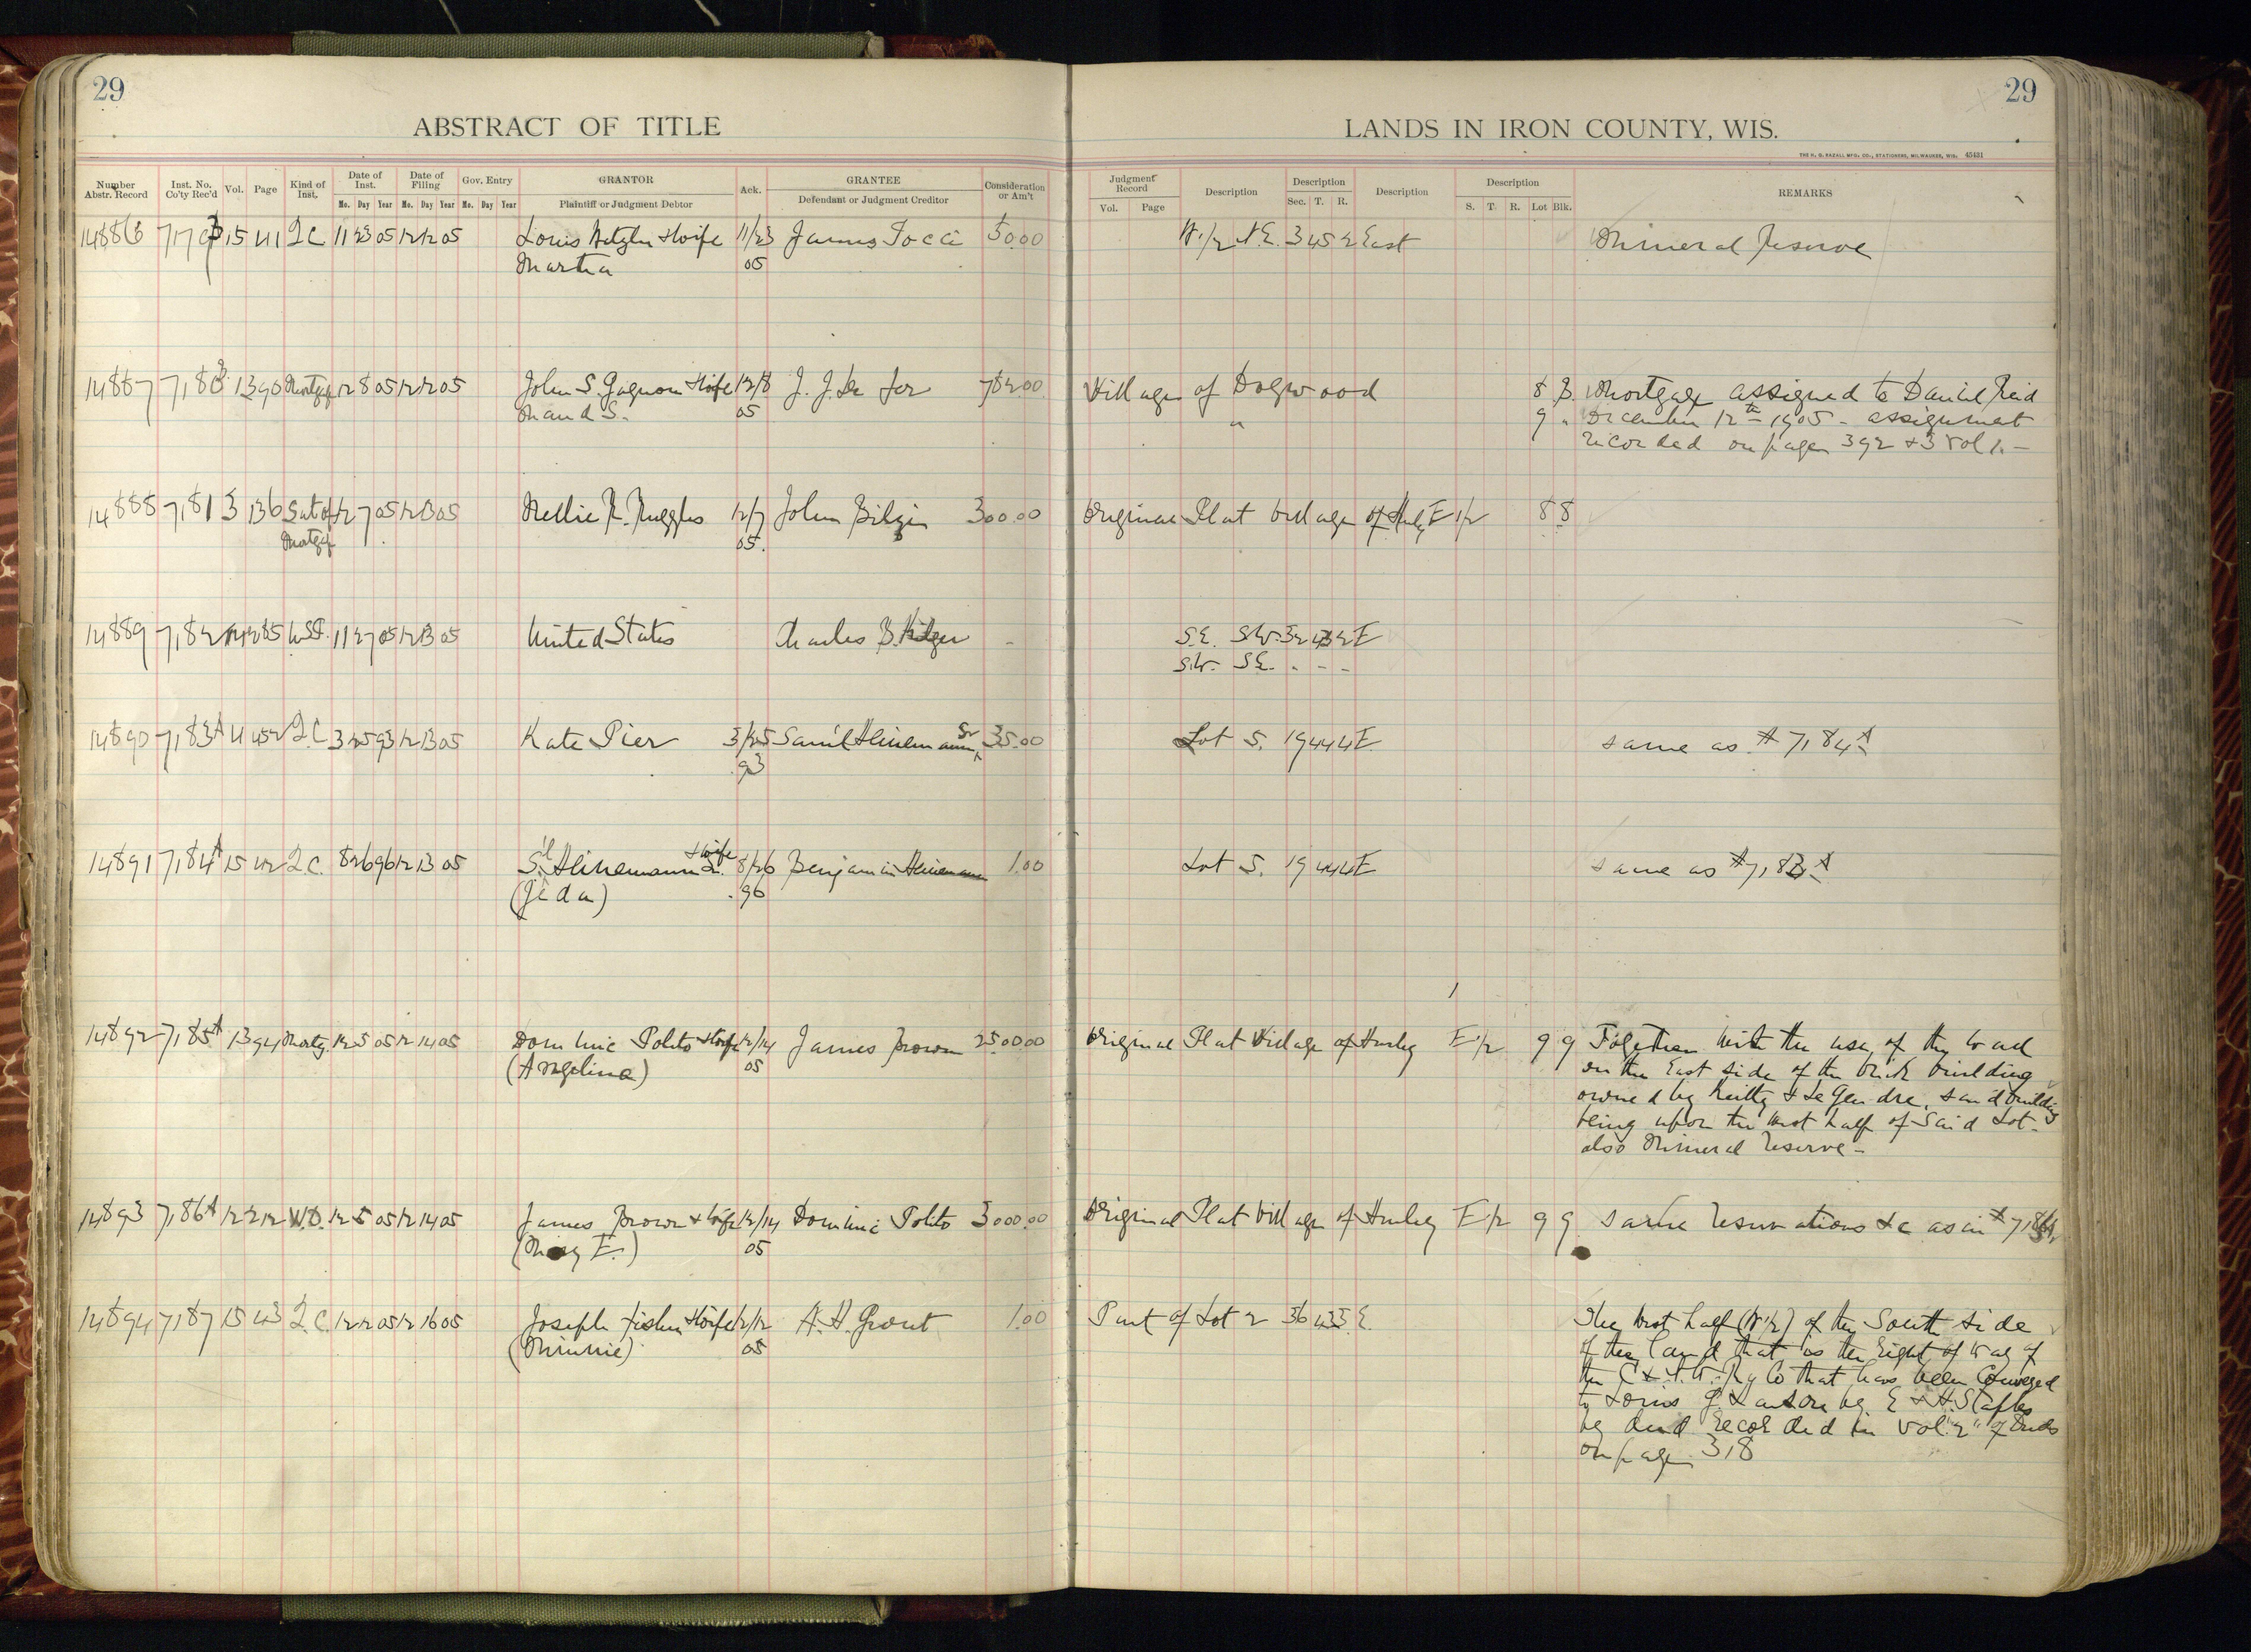 29
29
ABSTRACT OF TITLE
LANDS IN IRON COUNTY, WIS.
THE H. G. RAZALL MFG. CO., STATIONERS, MILWAUKEE, WIS. 45431
Number Abstr. Record Inst. No. Co'ty Rec'd Vol. Page Kind of Inst. Date of Inst. Date of Filing Gov. Entry GRANTOR Ack. GRANTEE Consideration or Am't
Mo. Day Year Mo. Day Year Mo. Day Year Plaintiff or Judgment Debtor Defendant or Judgment Creditor
Judgment Record Description Description Description Description REMARKS
Vol. Page Sec. T. R. S. T. R. Lot Blk.
14886 15 411 Q C 11 23 05 12 12 05 Louis & Wife 11/23 James Tocci 50.00 W 1/2 N.E. 3 45 2 East Mineral Reserve
Martha 05
14887 1 390 Mortgage 12 8 05 12 12 05 John S. Gagnon & Wife 12/8 J. J. 782.00 Village of Dogwood 8 B. Mortgage assigned to Daniel Reid
Maud S. 05 " 9 " December 12th 1905 - assignment
recorded on pages 392 & 3 Vol 1. -
14888 7181 3 136 Sat of 12 7 05 12 13 05 Nellie R. Ruggles 12/7 John 300.00 Original Plat Village of Hurley E 1/2 8 8
Mortgage 05.
14889 7182 285 U.S.P. 11 27 05 12 13 05 United States Charles B. - S.E. S.W. 32 43 2 E
S.W. S.E. " - -
14890 7183A 4 452 Q.C. 3 25 93 12 13 05 Kate Pier 3/25 Sam'l Heinemann, Sr 35.00 Lot 5. 19 44 4 E same as # 7184A
93
14891 7184A 15 412 Q.C. 8 26 96 12 13 05 S'l Heinemann Sr. & Wife 8/26 Benjamin Heinemann 1.00 Lot 5. 19 44 4 E same as # 7183A
96
14892 7185A 1 394 Mortg. 12 5 05 12 14 05 Dominic Polito & Wife 12/14 James Brown 2500.00 Original Plat Village of Hurley E 1/2 9 9 Together with the use of the wall
(Angelina) 05 on the East side of the brick building
owned by Reilly & Le Gendre, said building
being upon the West half of said Lot -
also Mineral Reserve -
14893 7186A 12 212 W.D. 12 5 05 12 14 05 James Brown & Wife 12/14 Dominic Polito 3000.00 Original Plat Village of Hurley E 1/2 9 9 same reservations &c as in #
(Mary E.) 05
14894 7187 15 413 Q.C. 12 12 05 12 16 05 Joseph Fisher & Wife 12/12 A. H. Grout 1.00 Part of Lot 2 36 43 3 E. The West half (W 1/2) of the South side
(Minnie) 05 of the land that is the Right of Way of
the Ry Co that has been Conveyed
to Louis by E & H Staples
by deed recorded in Vol. "2" of Deeds
on page 318